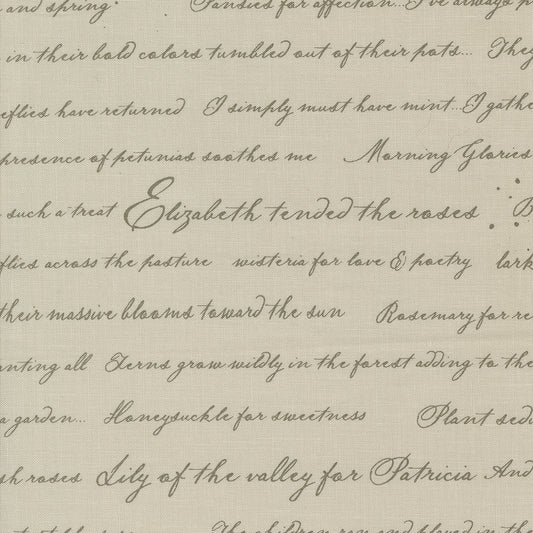 and spring. Pansies for affection... I've always
in their bold colors tumbled out of their pots... They
have returned I simply must have mint... I gathe
presence of petunias soothes me Morning Glories
such a treat Elizabeth tended the roses B
flies across the pasture wisteria for love & poetry lark
their massive blooms toward the sun Rosemary for re
anting all Ferns grow wildly in the forest adding to the
a garden... Honeysuckle for sweetness Plant sed
sh roses Lily of the valley for Patricia And
The children ran and played in the